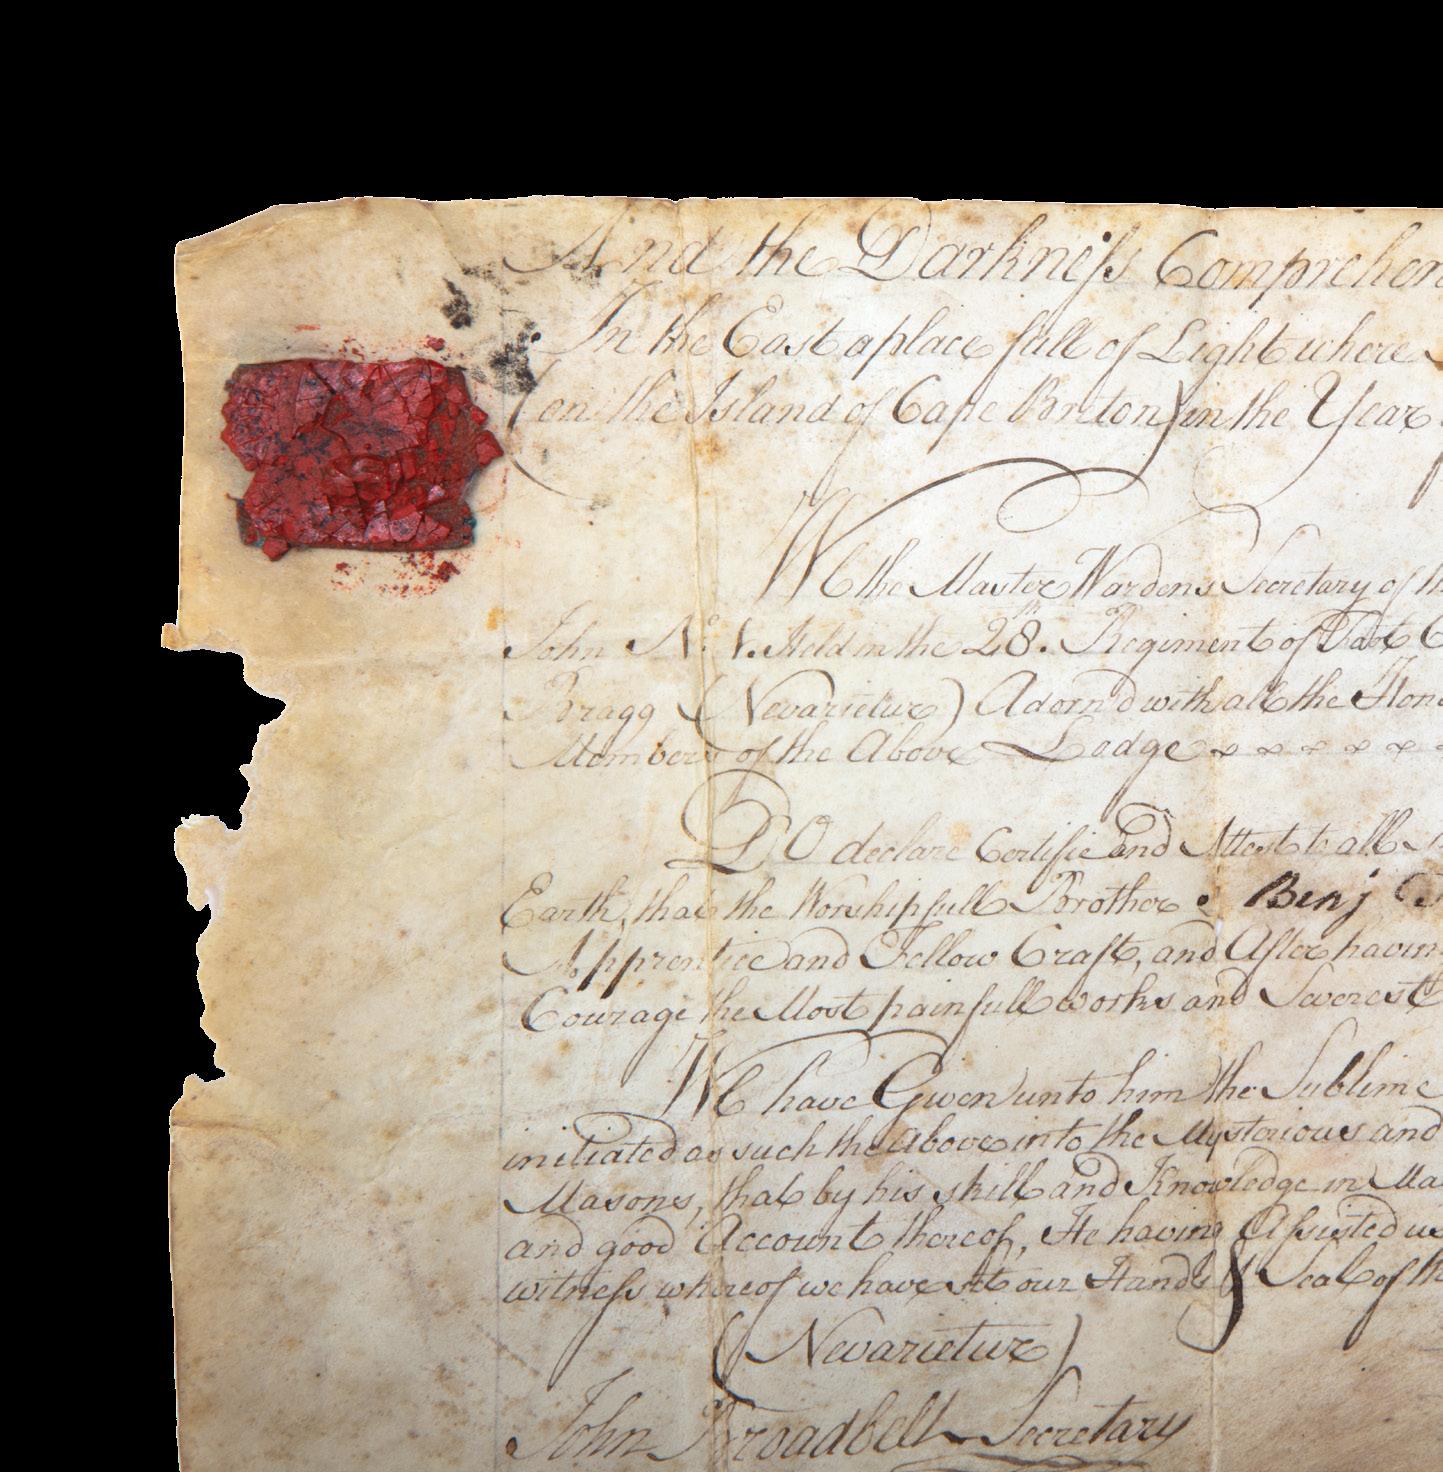 And the Darkness Comprehen
In the East a place full of Light where
(on the Island of Cape Breton) in the Year
We the Master Wardens Secretary of th
John No. 1. Held in the 28th. Regiment of Foot
Bragg (Nevarietur) Adorn'd with all the Hono
Members of the Above Lodge
DO declare Certifie and Attest to all
Earth, that the Worshipfull Brother Benj
Apprentice and Fellow Craft, and After havin
Courage the Most painfull works and Severest
We have Given unto him the Sublime
initiated as such the Above into the Mysterious and
Masons, that by his skill and Knowledge in Ma
and good Account thereof, He having Assisted us
witness whereof we have set our Hands & Seal of th
(Nevarietur)
John Broadbelt Secretary